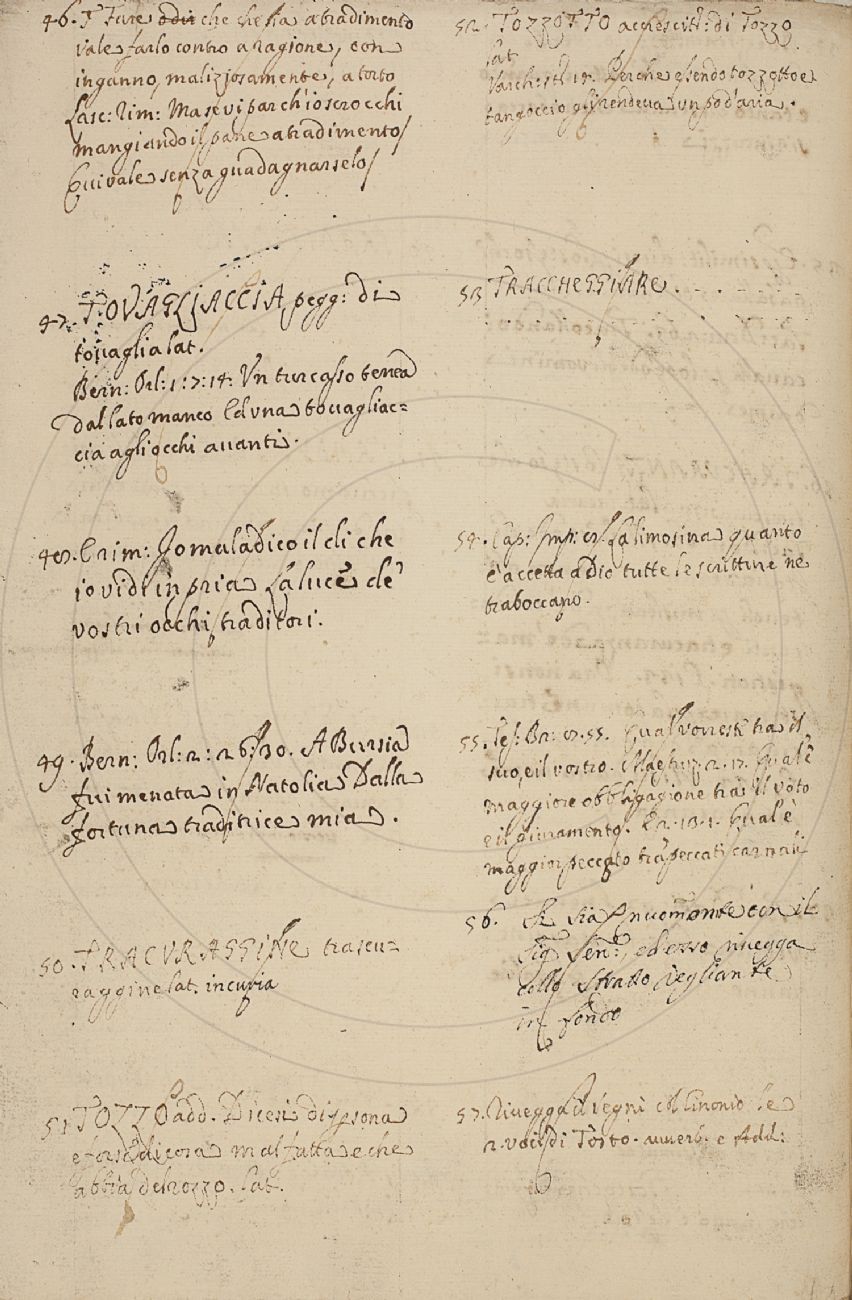 46. T Fare o dir che che sia a tradimento
vale farlo contro a ragione, con
inganno, maliziosamente, a torto
Lasc: Rim: Ma se vi par ch'io scrocchi
mangiando il pane a tradimento/
Qui vale senza guadagnarselo/
47. TOVAGLIACCIA, pegg: di
tovaglia lat.
Bern: Orl: 1: 7: 14: Vn turcasso tenea
dal lato manco Ed vna tovagliac=
cia agli occhi auanti.
48. E rim: Jo maladico il di che
io vidi in pria La luce de'
vostri occhi traditori.
49. Bern: Orl: 2: 26: 30. A Bursia
fui menata in Natolia Dalla
fortuna traditrice mia.
50. TRACVRAGGINE trascu=
raggine lat. incuria
51. TOZZO add. Dicesi di psona
e forse di cosa malfatta e che
abbia del rozzo. Lat.
52. TOZZOTTO accrescit: di Tozzo
Lat.
Varch. 17. Perche essendo tozzotto e
tangoccio gli rendeua un po d'aria.
53. TRACCHEGGIARE.
54. Cap: Imp: La limosina quanto
è accetta a Dio tutte le scritture ne
traboccano.
55. Tes: Br: 55. Qual vorreste tra il
suo, e il vostro. Maestruz 2. 17. Qual è
maggiore obbligagione tra il voto
e il giuramento. 13. 1. Qual è
maggior peccato tra peccati carnali
56. Si sia nuovamente con il
Sig. Sen:, ed esso riuegga
collo Stratto vegliante
in fondo
57. Riuegga il Segni le
2. voci di Tosto. auuerb. e Add: